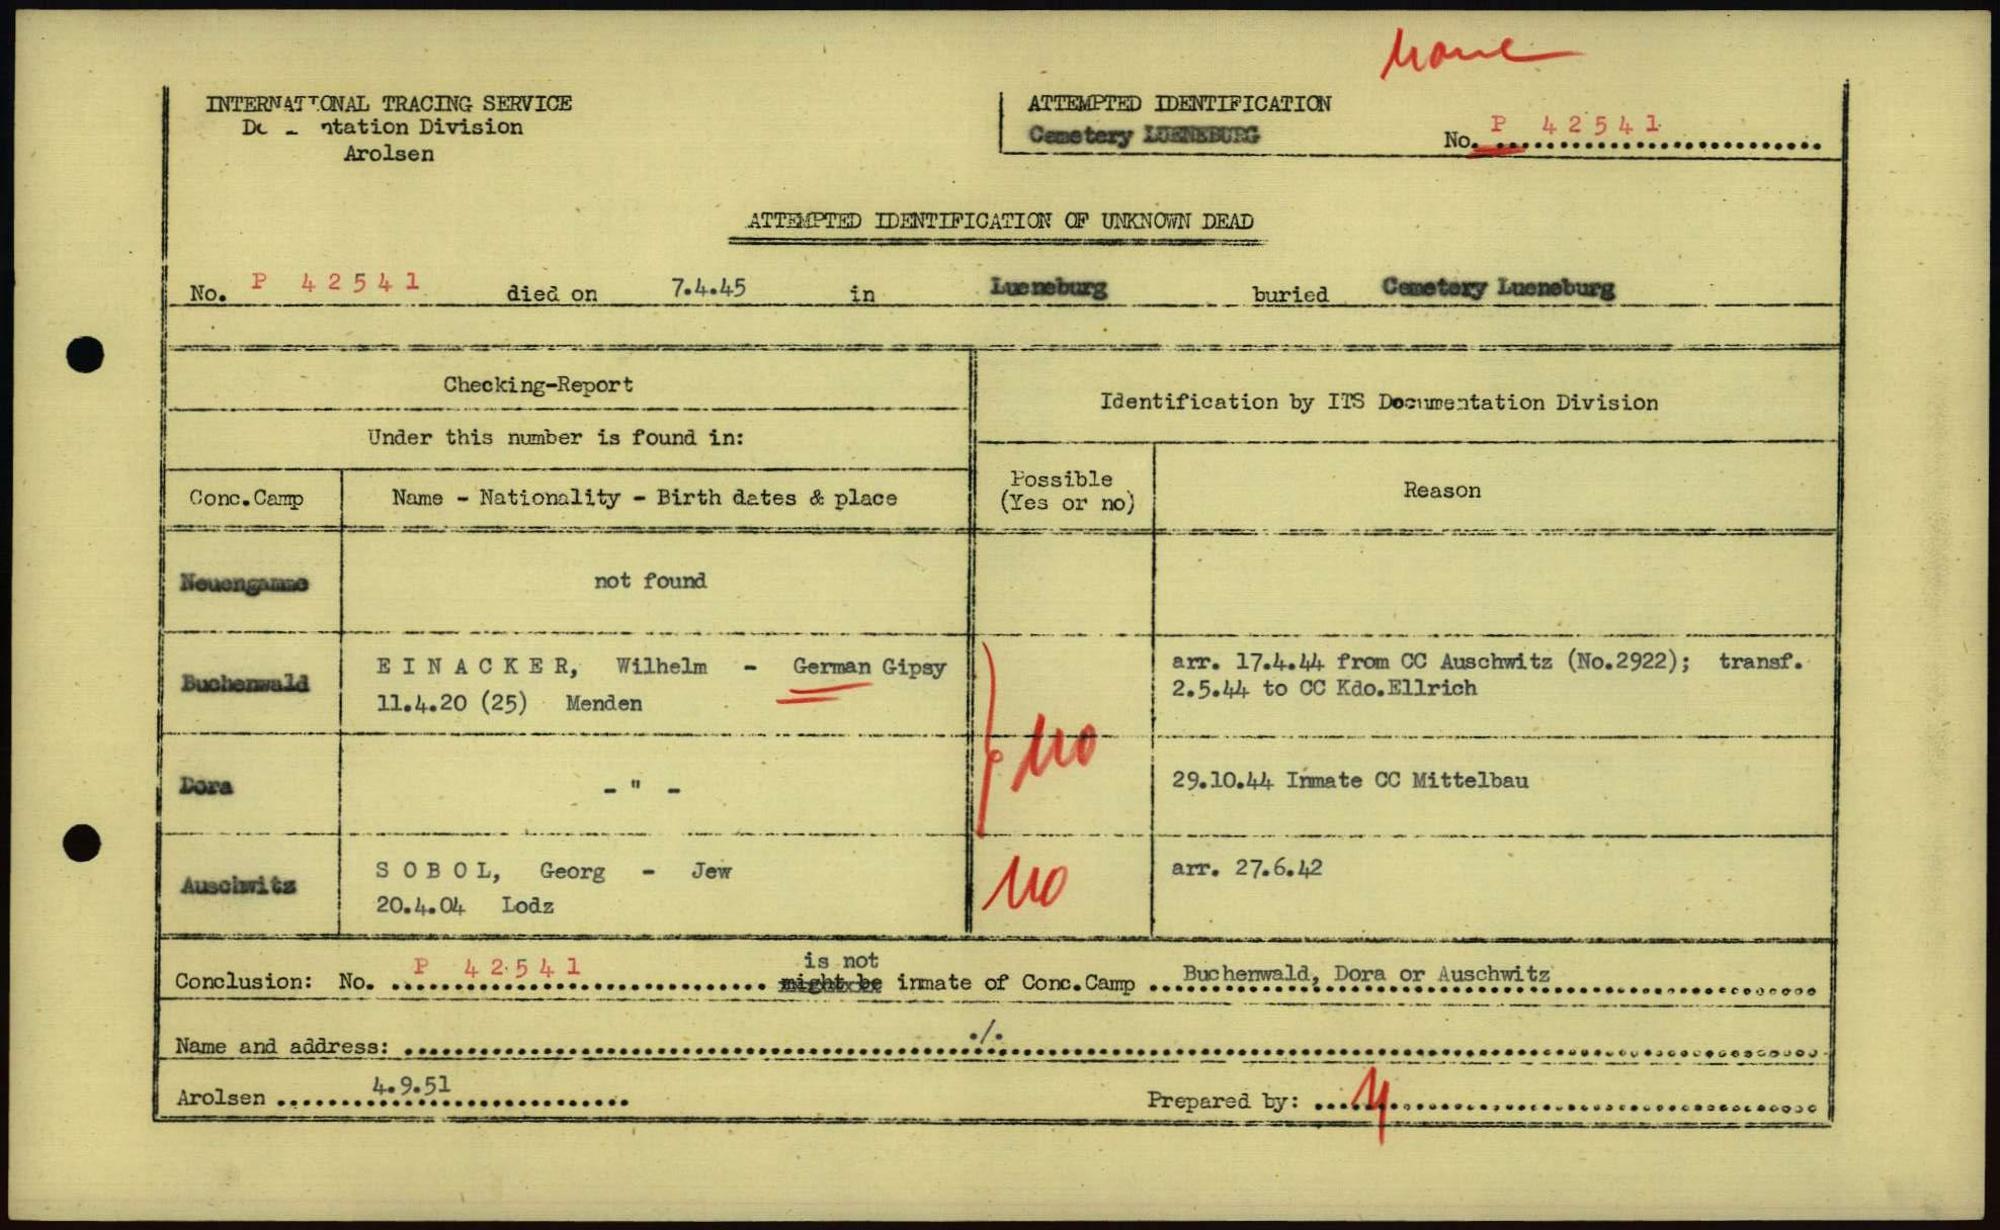 None
INTERNATIONAL TRACING SERVICE
Documentation Division
Arolsen
ATTEMPTED IDENTIFICATION
Cemetery LUENEBURG
No. P 42541
ATTEMPTED IDENTIFICATION OF UNKNOWN DEAD
No. P 42541 died on 7.4.45 in Lueneburg buried Cemetery Lueneburg
Checking-Report
Identification by ITS Documentation Division
Under this number is found in:
Conc.Camp
Name - Nationality - Birth dates & place
Possible
(Yes or no)
Reason
Neuengamme
not found
Buchenwald
E I N A C K E R, Wilhelm - German Gipsy
11.4.20 (25) Menden
arr. 17.4.44 from CC Auschwitz (No.2922); transf.
2.5.44 to CC Kdo.Ellrich
no
Dora
- " -
29.10.44 Inmate CC Mittelbau
Auschwitz
S O B O L, Georg - Jew
20.4.04 Lodz
no
arr. 27.6.42
Conclusion: No. P 42541 might be is not inmate of Conc.Camp Buchenwald, Dora or Auschwitz
Name and address: ./.
Arolsen 4.9.51
Prepared by: